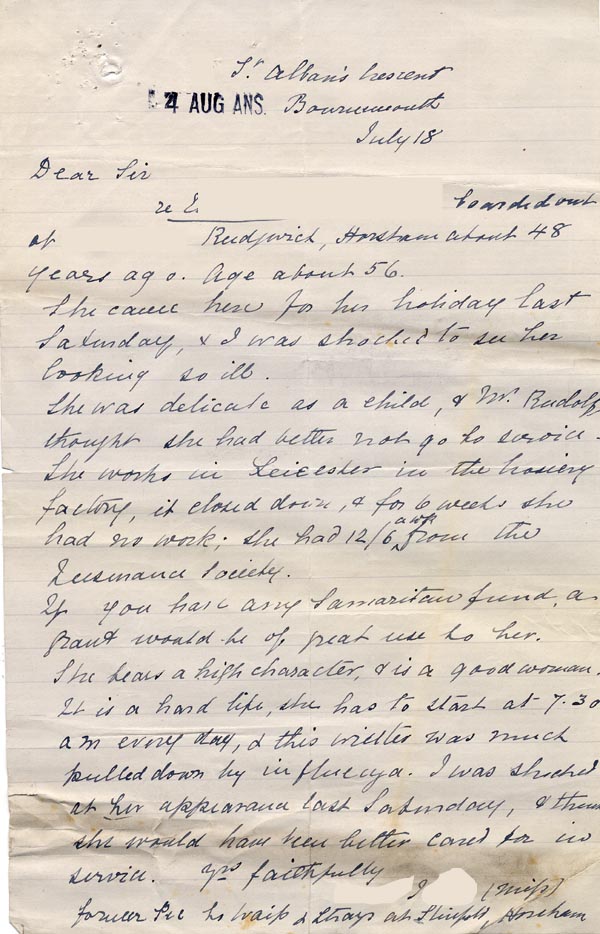 St Alban's Crescent
4 AUG ANS. Bournemouth
July 18
Dear Sir
re E. boarded out
at Rudgwick, Horsham about 48
years ago. Age about 56.
She came here for her holiday last
Saturday, & I was shocked to see her
looking so ill.
She was delicate as a child, & Mr. Rudolf
thought she had better not go to service.
She works in Leicester in the hosiery
factory, it closed down, & for 6 weeks she
had no work; she had 12/6 a wk from the
Insurance Society.
If you have any Samaritan fund, a
grant would be of great use to her.
She bears a high character, & is a good woman.
It is a hard life, she has to start at 7.30
am every day, & this winter was much
pulled down by influenza. I was shocked
at her appearance last Saturday, & think
she would have been better cared for in
service. Yrs faithfully
(Miss)
former Sec to Waifs & Strays at Slinfold, Horsham